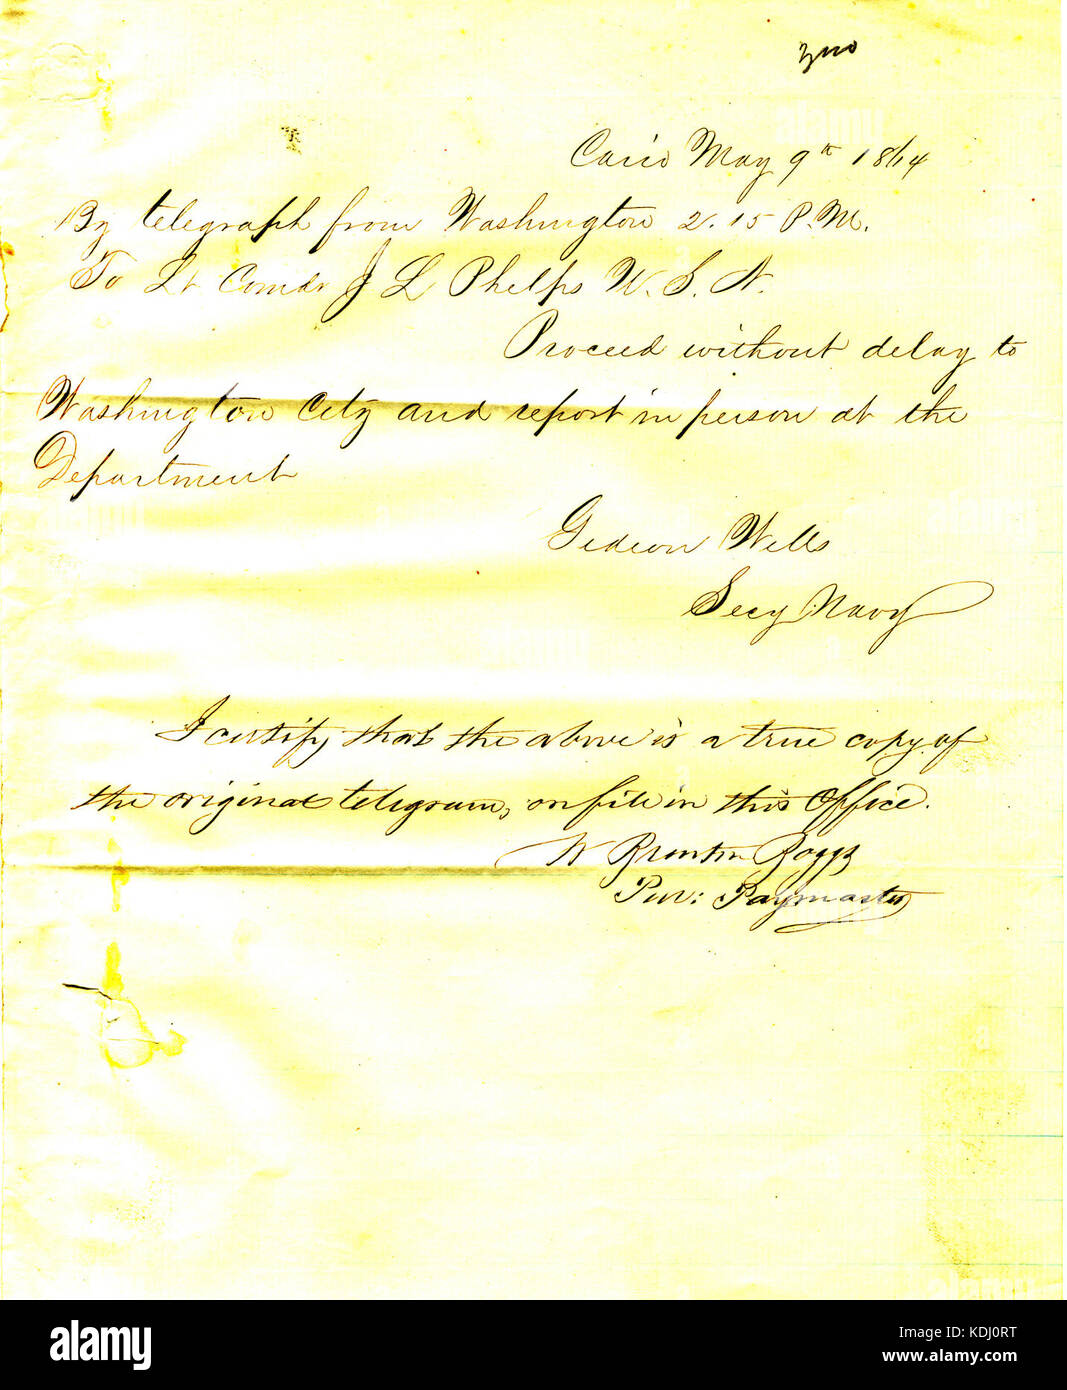 Cairo May 9th 1864
By telegraph from Washington 2.15 P.M.
To Lt Comdr J L Phelps U.S.N.
Proceed without delay to
Washington City and report in person at the
Department
Gideon Wells
Secy Navy
I certify that the above is a true copy of
the original telegram, on file in this Office.
W Brenton Boggs
Paymaster
alamy
Image ID: KDJ0RT
www.alamy.com